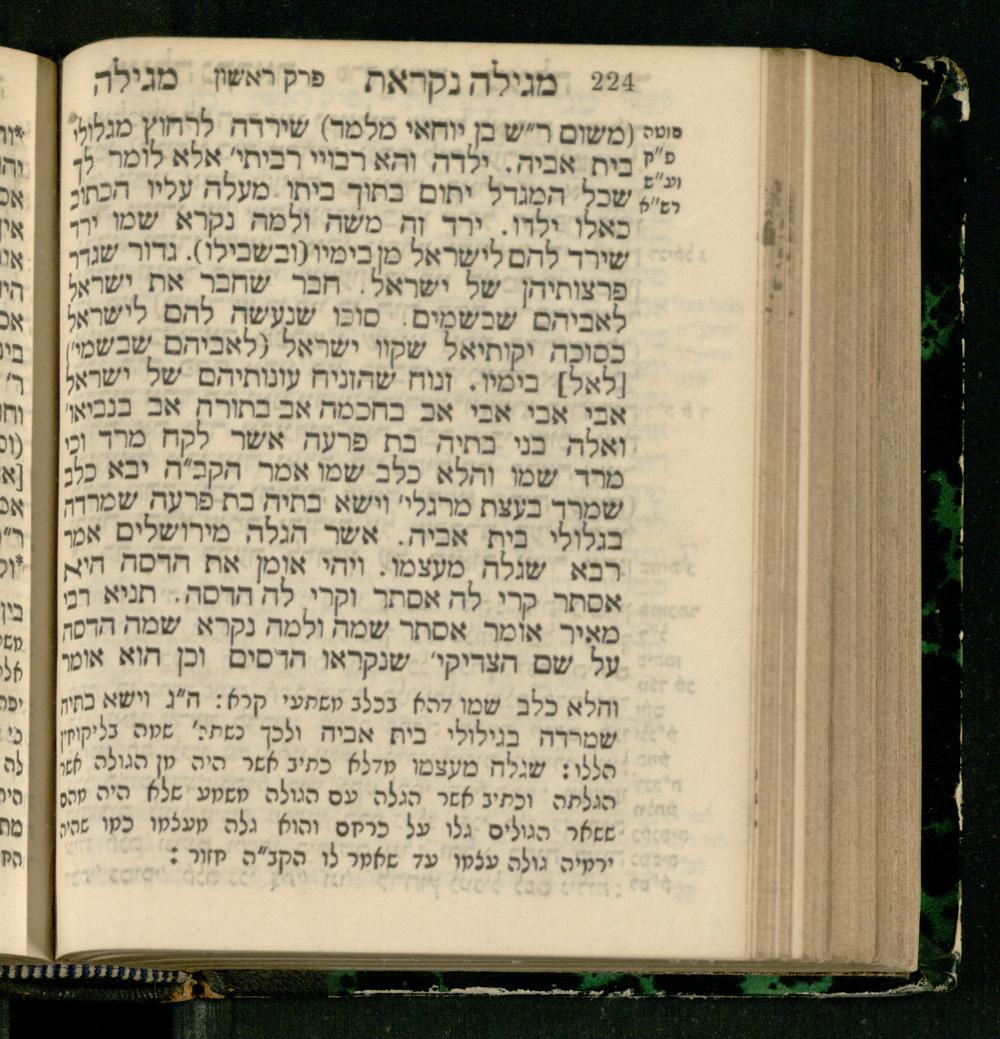 224 מגילה נקראת פרק ראשון מגילה
סוטה
פ״ק
וע״ש
רש״א
(משום ר״ש בן יוחאי מלמד) שירדה לרחוץ מגלולי
בית אביה. ילדה והא רבויי רביתי׳ אלא לומר לך
שכל המגדל יתום בתוך ביתו מעלה עליו הכתוב
כאלו ילדו. ירד זה משה ולמה נקרא שמו ירד
שירד להם לישראל מן בימיו (ובשבילו). גדור שגדר
פרצותיהן של ישראל. חבר שחבר את ישראל
לאביהם שבשמים. סוכו שנעשה להם לישראל
כסוכה יקותיאל שקוו ישראל (לאביהם שבשמי׳)
[לאל] בימיו. זנוח שהזניח עונותיהם של ישראל
אבי אבי אבי אב בחכמה אב בתורה אב בנביאו׳
ואלה בני בתיה בת פרעה אשר לקח מרד וכי
מרד שמו והלא כלב שמו אמר הקב״ה יבא כלב
שמרד בעצת מרגלי׳ וישא בתיה בת פרעה שמרדה
בגלולי בית אביה. אשר הגלה מירושלים אמר
רבא שגלה מעצמו. ויהי אומן את הדסה היא
אסתר קרי לה אסתר וקרי לה הדסה. תניא רבי
מאיר אומר אסתר שמה ולמה נקרא שמה הדסה
על שם הצדיקי׳ שנקראו הדסים וכן הוא אומר
והלא כלב שמו דהא בכלב משתעי קרא: ה״ג וישא בתיה
שמרדה בגילולי בית אביה ולכך כשתכ׳ שמה בליקוחין
הללו: שגלה מעצמו מדלא כתיב אשר היה מן הגולה אשר
הגלתה וכתיב אשר הגלה עם הגולה משמע שלא היה מהם
ששאר הגולים גלו על כרחם והוא גלה מעצמו כמו שהיה
ירמיה גולה עצמו עד שאמר לו הקב״ה חזור :